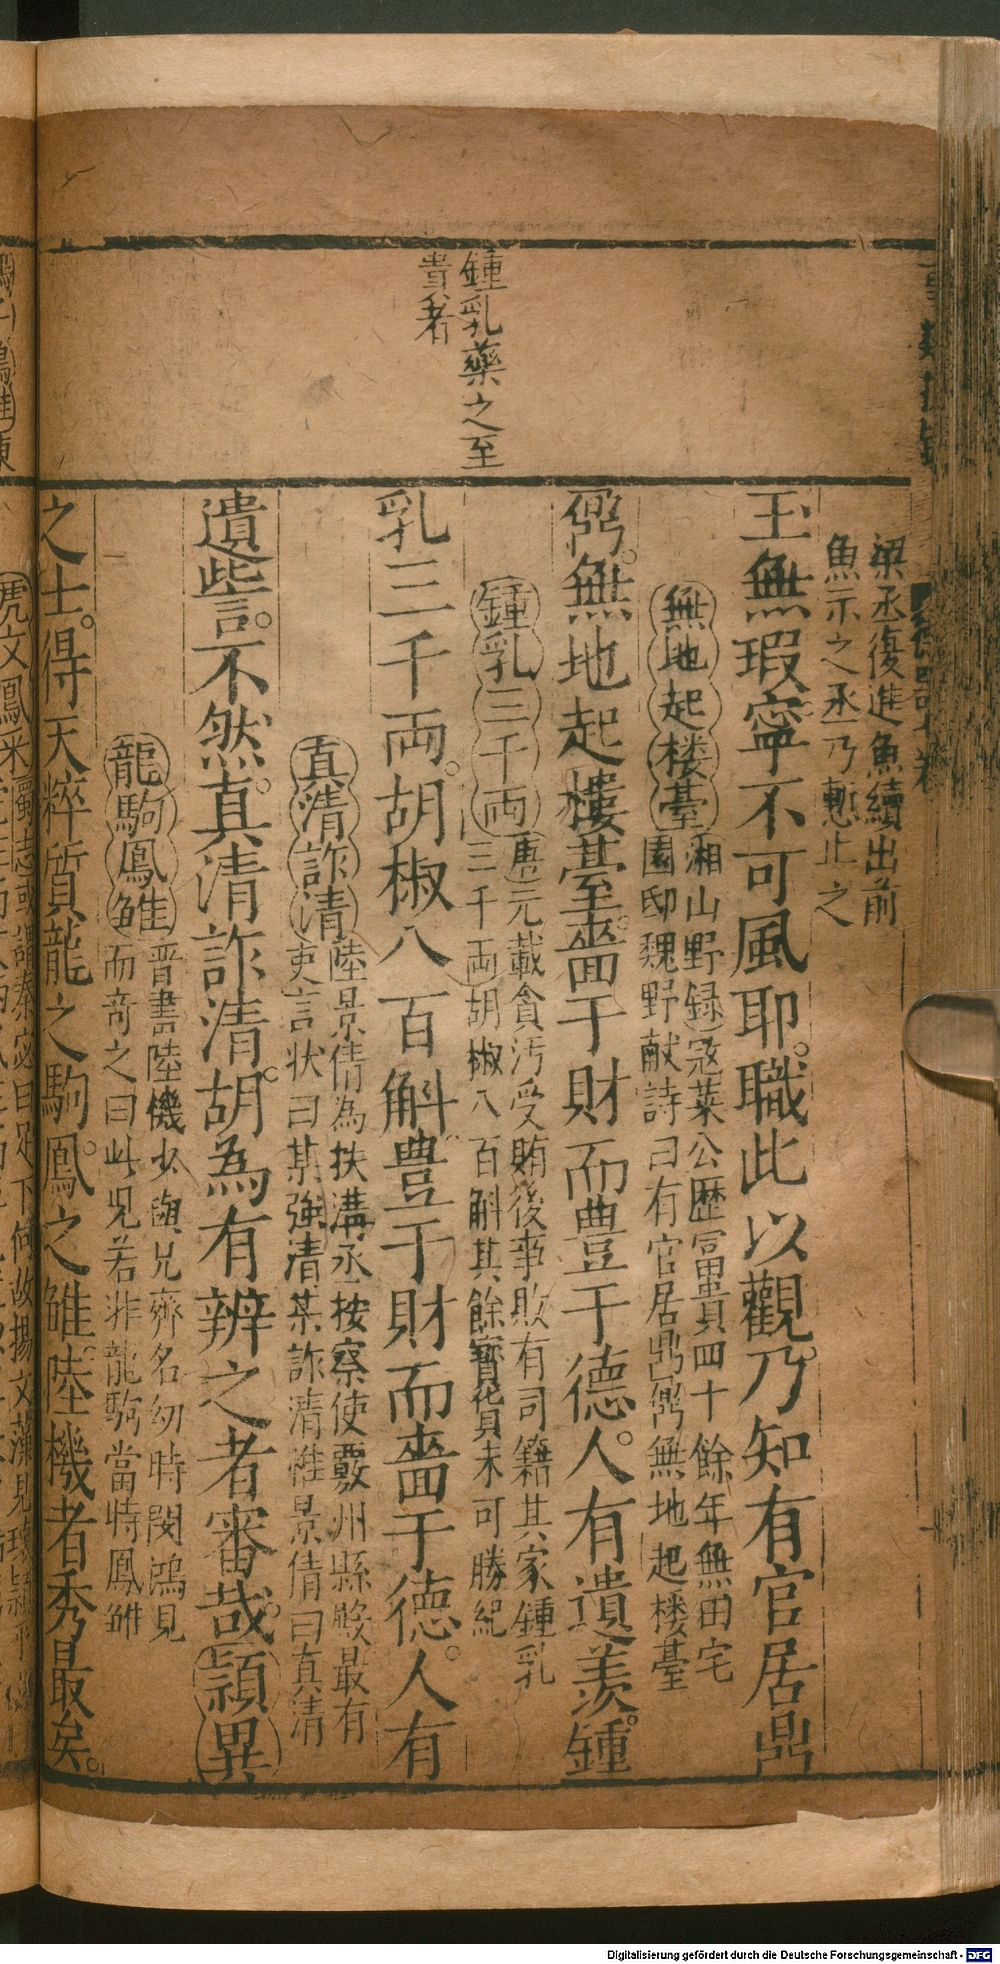 鍾乳藥之至
貴者
梁丞復進魚續出前
魚示之丞乃慙止之
玉無瑕寧不可風耶職此以觀乃知有官居鼎
無地起楼臺湘山野録寇萊公歷富貴四十餘年無田宅
園邸魏野献詩曰有官居鼎鼐無地起楼臺
鼐無地起樓臺嗇于財而豊于德人有遺羨鍾
鍾乳三千両唐元載貪汚受賄後事敗有司籍其家鍾乳
三千両胡椒八百斛其餘寳貨未可勝紀
乳三千両胡椒八百斛豊于財而嗇于德人有
真清詐清陸景倩為扶溝丞按察使覈州縣殿最有
吏言状曰某強清某詐清惟景倩曰真清
遺訾不然真清詐清胡為有辨之者審哉頴異
龍駒鳳雏晋書陸機少與兄齊名幼時閔鴻見
而竒之曰此児若非龍駒當時鳳雏
之士得天粹質龍之駒鳳之雏陸機者秀最矣
Digitalisierung gefördert durch die Deutsche Forschungsgemeinschaft - DFG